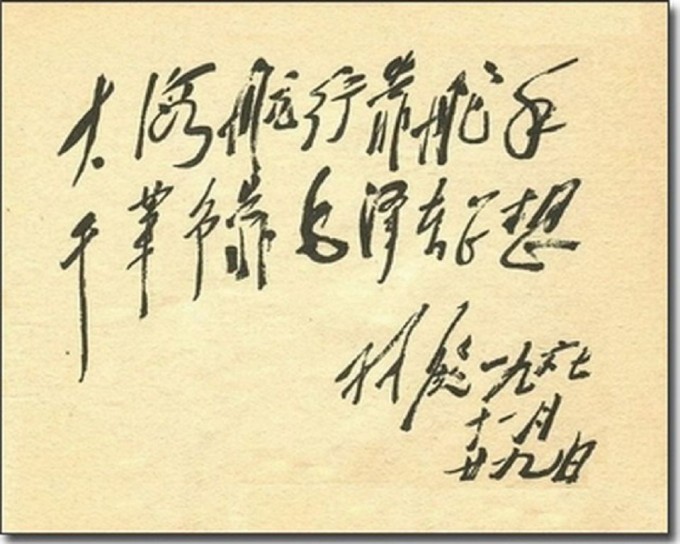 大海航行靠舵手
干革命靠毛泽东思想
林彪 一九六七
十一月
廿九日